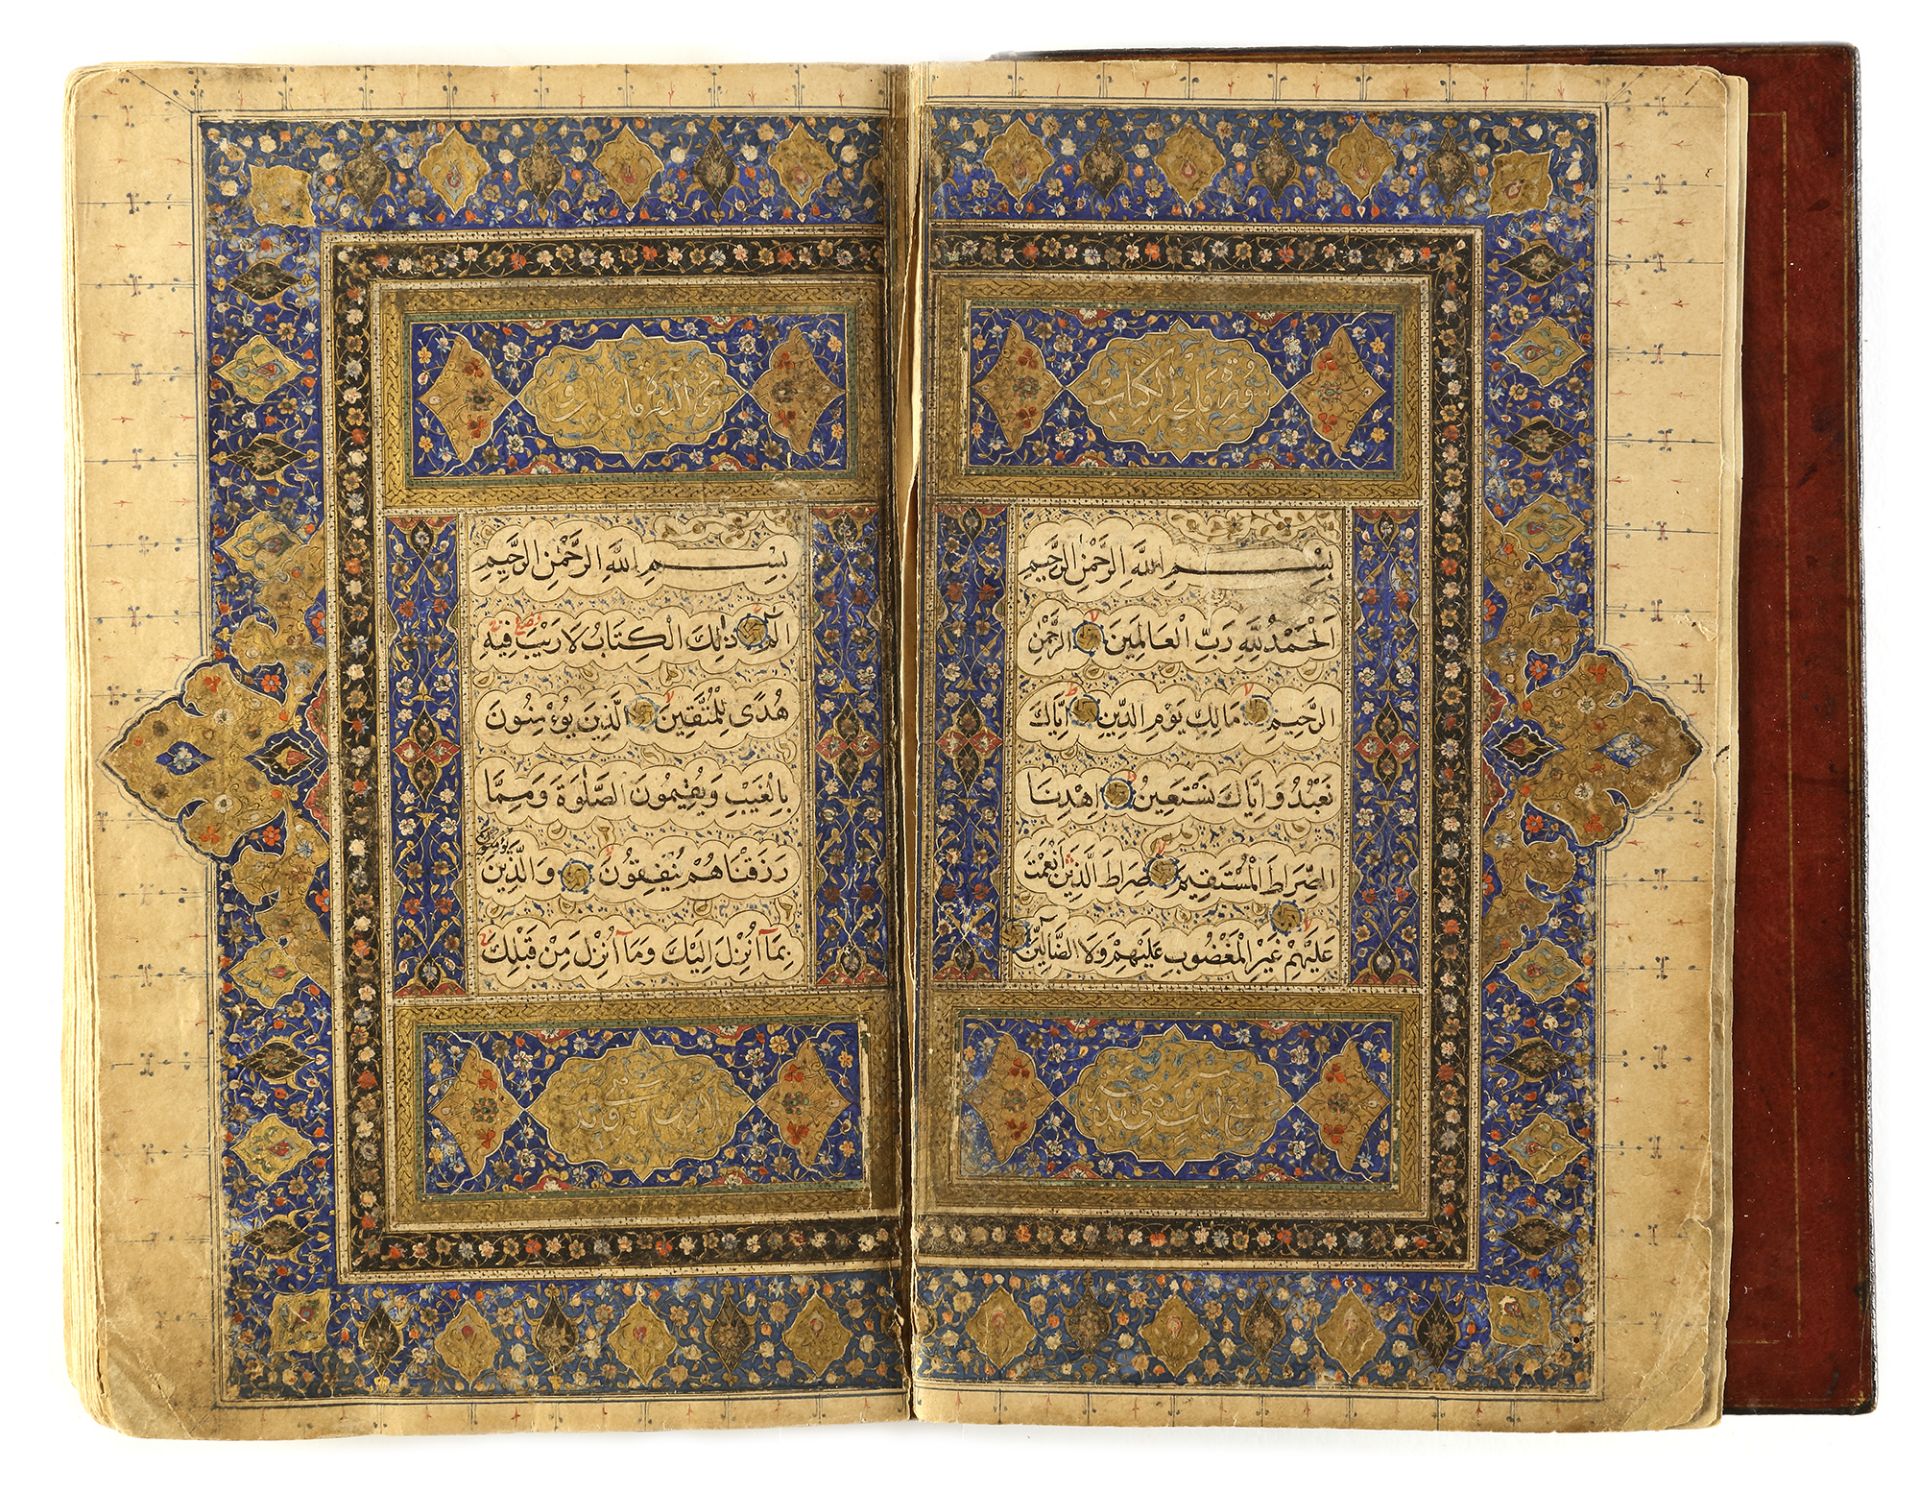 سورة فاتحة الكتاب
بِسْمِ اللَّهِ الرَّحْمٰنِ الرَّحِيمِ
اَلْحَمْدُ لِلَّهِ رَبِّ الْعَالَمِينَ الرَّحْمٰنِ
الرَّحِيمِ مَالِكِ يَوْمِ الدِّينِ اِيَّاكَ
نَعْبُدُ وَاِيَّاكَ نَسْتَعِينُ اِهْدِنَا
الصِّرَاطَ الْمُسْتَقِيمَ صِرَاطَ الَّذِينَ اَنْعَمْتَ
عَلَيْهِمْ غَيْرِ الْمَغْضُوبِ عَلَيْهِمْ وَلَا الضَّآلِّينَ
بِسْمِ اللَّهِ الرَّحْمٰنِ الرَّحِيمِ
الٓمٓ ذٰلِكَ الْكِتَابُ لَا رَيْبَ فِيهِ
هُدًى لِلْمُتَّقِينَ الَّذِينَ يُؤْمِنُونَ
بِالْغَيْبِ وَيُقِيمُونَ الصَّلٰوةَ وَمِمَّا
رَزَقْنَاهُمْ يُنْفِقُونَ وَالَّذِينَ يؤمنون
بِمَآ اُنْزِلَ اِلَيْكَ وَمَآ اُنْزِلَ مِنْ قَبْلِكَ